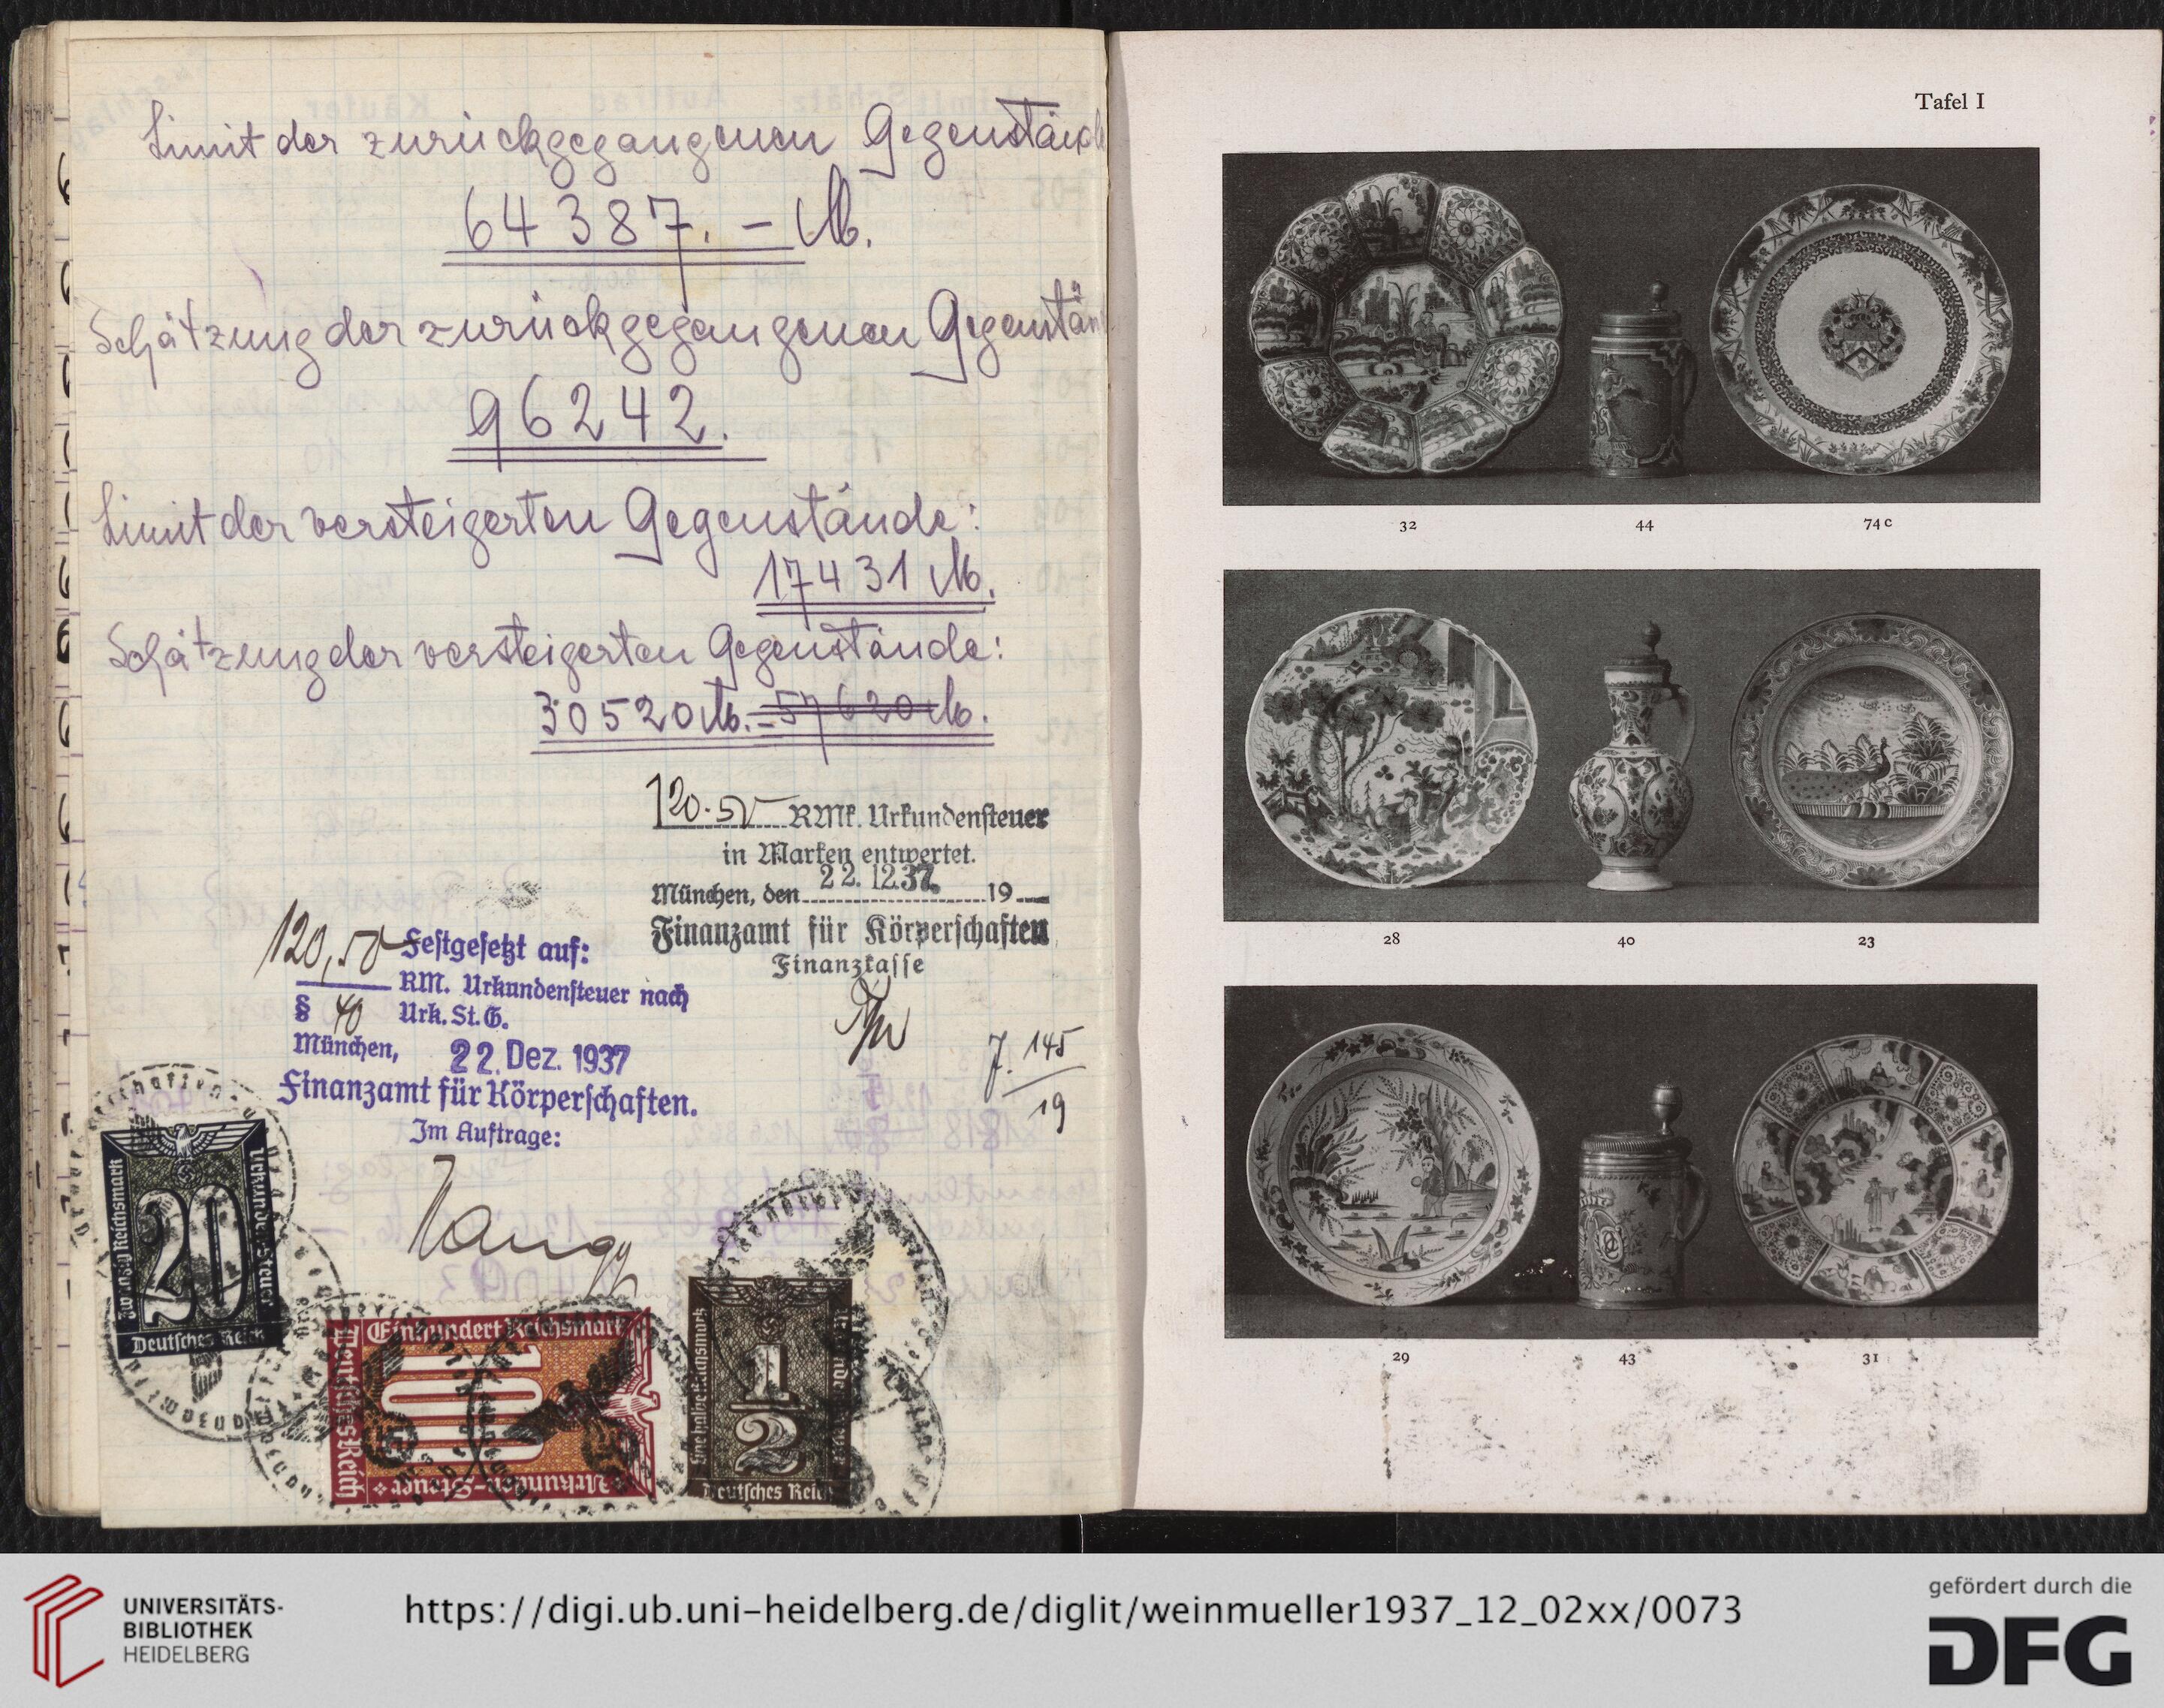 Limit der zurückgegangenen Gegenstände
64387.- M.
Schätzung der zurückgegangenen Gegenstän
96242.
Limit der versteigerten Gegenstände:
17431 M.
Schätzung der versteigerten Gegenstände:
30520 M. - 57620 M.
120.50 RMk. Urkundensteuer
in Marken entwertet.
München, den 22. 12. 37. 19
Finanzamt für Körperschaften
Finanzkasse
120,50 Festgesetzt auf:
RM. Urkundensteuer nach
§ 40 Urk. St. G.
München, 22. Dez. 1937
Finanzamt für Körperschaften.
Im Auftrage:
J. 145
19
Zwanzig Reichsmark
20
Urkunden-Steuer
Deutsches Reich
Einhundert Reichsmark
100
Deutsches Reich
Urkunden-Steuer
Eine halbe Reichsmark
1/2
Deutsches Reich
Tafel I
32 44 74 c
28 40 23
29 43 31
UNIVERSITÄTS-
BIBLIOTHEK
HEIDELBERG
https://digi.ub.uni-heidelberg.de/diglit/weinmueller1937_12_02xx/0073
gefördert durch die
DFG